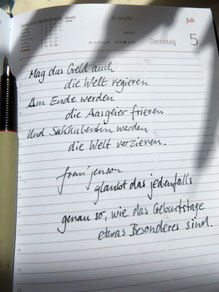 Juli
Dienstag 5
Mag das Geld auch
die Welt regieren
Am Ende werden
die Aasgeier frieren
Und Sukkulenten werden
die Welt verzieren.
frau jenson
glaubt das jedenfalls
genau so, wie das Geburtstage
etwas Besonderes sind.